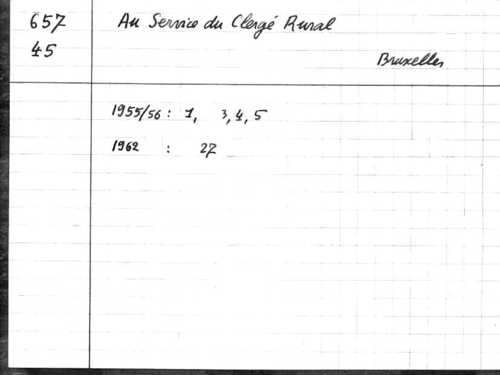 657 Au Service du Clergé Rural
45 Bruxelles
1955/56 : 1, 3, 4, 5
1962 : 27